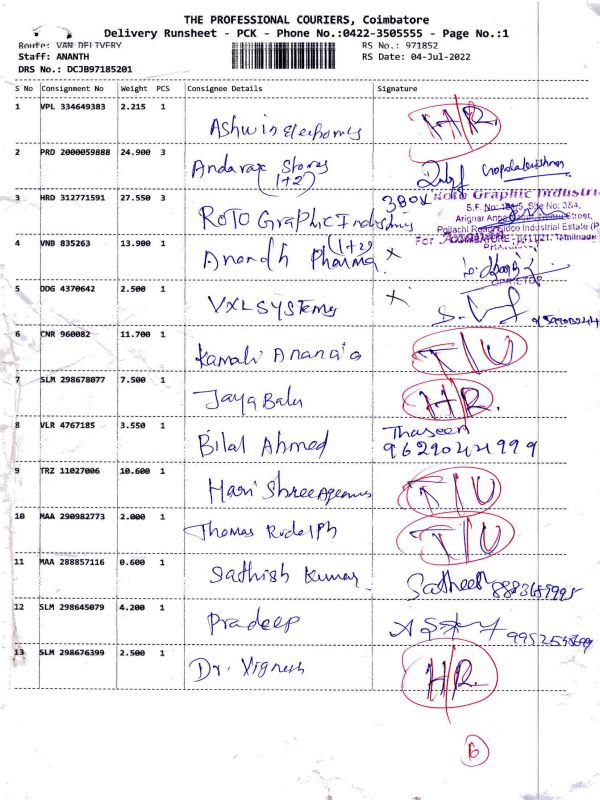 THE PROFESSIONAL COURIERS, Coimbatore
Delivery Runsheet - PCK - Phone No.:0422-3505555 - Page No.:1
Route: VAN DELIVERY
RS No.: 971852
Staff: ANANTH
RS Date: 04-Jul-2022
DRS No.: DCJB97185201
S No Consignment No Weight PCS Consignee Details Signature
1 VPL 334649383 2.215 1 Ashwin Electronics H/R.
2 PRD 2000059888 24.900 3 Andavar Stores
(1+2)
3 HRD 312771591 27.550 3 ROTO Graphic Industries 3 BOX
(1+2)
Roto Graphic Industri
4 VNB 835263 13.900 1 Anandh Pharma X
5 DDG 4370642 2.500 1 VXL SYSTems X
6 CNR 960082 11.700 1 Kamali T/U
7 SLM 298678077 7.500 1 Jaya Balu H/R.
8 VLR 4767185 3.550 1 Bilal Ahmed Thaseen
9629021999
9 TRZ 11027006 10.600 1 Hari Shree Agencies T/U
10 MAA 290982773 2.000 1 Thomas Rudolph T/U
11 MAA 288857116 0.600 1 Sathish Kumar Satheesh
12 SLM 298645079 4.200 1 Pradeep
13 SLM 298676399 2.500 1 Dr. Vignesh H/R.
6